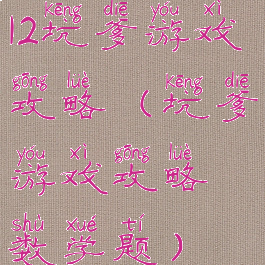 kēng diē yóu xì
12坑爹游戏
gōng lüè kēng diē
攻略（坑爹
yóu xì gōng lüè
游戏攻略
shù xué tí
数学题）